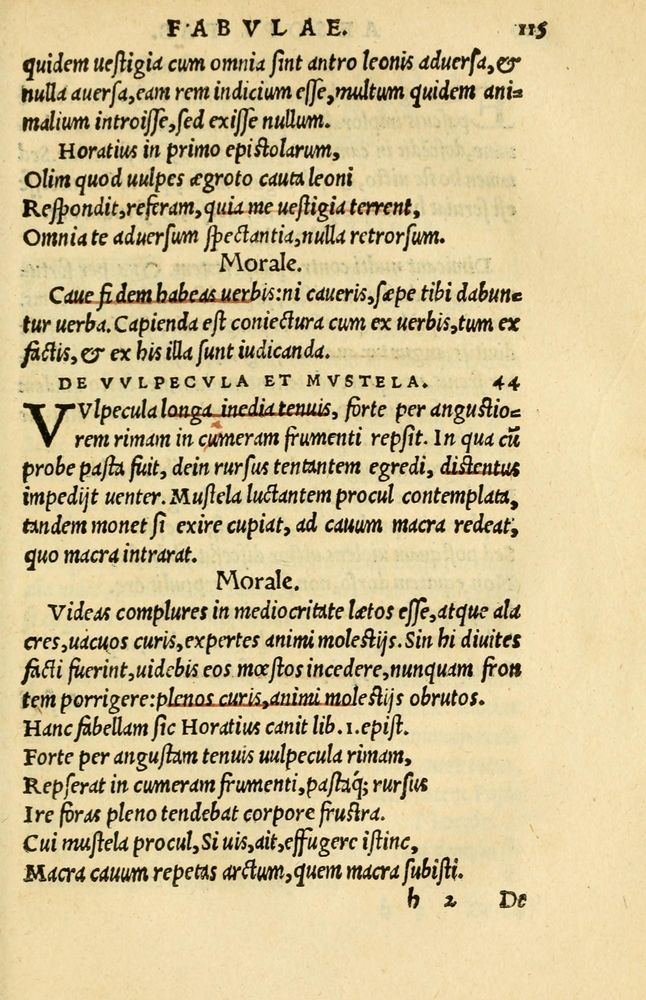 FABVLAE. 115
quidem uestigia cum omnia sint antro leonis aduersa, &
nulla auersa, eam rem indicium esse, multum quidem ani=
malium introisse, sed exisse nullum.
Horatius in primo epistolarum,
Olim quod uulpes ægroto cauta leoni
Respondit, referam, quia me uestigia terrent,
Omnia te aduersum spectantia, nulla retrorsum.
Morale.
Caue fidem habeas uerbis: ni caueris, sæpe tibi dabun=
tur uerba. Capienda est coniectura cum ex uerbis, tum ex
factis, & ex his illa sunt iudicanda.
DE VVLPECVLA ET MVSTELA. 44
VVlpecula longa inedia tenuis, forte per angustio=
rem rimam in cumeram frumenti repsit. In qua cū
probe pasta fuit, dein rursus tentantem egredi, distentus
impedijt uenter. Mustela luctantem procul contemplata,
tandem monet si exire cupiat, ad cauum macra redeat,
quo macra intrarat.
Morale.
Videas complures in mediocritate lætos esse, atque ala
cres, uacuos curis, expertes animi molestijs. Sin hi diuites
facti fuerint, uidebis eos mœstos incedere, nunquam fron
tem porrigere: plenos curis, animi molestijs obrutos.
Hanc fabellam sic Horatius canit lib. 1. epist.
Forte per angustam tenuis uulpecula rimam,
Repserat in cumeram frumenti, pastaq; rursus
Ire foras pleno tendebat corpore frustra.
Cui mustela procul, Si uis, ait, effugere istinc,
Macra cauum repetas arctum, quem macra subisti.
h 2 De